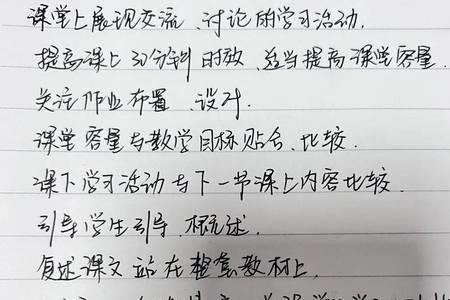 课堂上展现交流、讨论的学习活动.
提高课上30分钟时效,适当提高课堂容量.
关注作业布置、设计.
课堂容量与教学目标贴合、比较.
课下学习活动与下一节课上内容比较.
引导学生引导、概述.
复述课文站在整套教材上.